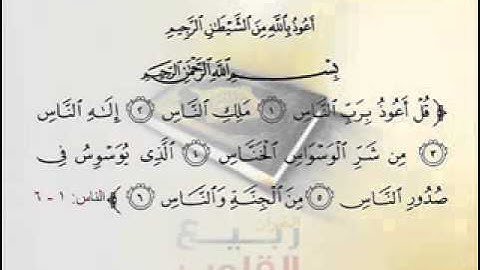 أَعُوذُ بِاللَّهِ مِنَ الشَّيْطَانِ الرَّجِيمِ
بِسْمِ اللَّهِ الرَّحْمَٰنِ الرَّحِيمِ
﴿ قُلْ أَعُوذُ بِرَبِّ النَّاسِ ١ مَلِكِ النَّاسِ ٢ إِلَٰهِ النَّاسِ
٣ مِن شَرِّ الْوَسْوَاسِ الْخَنَّاسِ ٤ الَّذِي يُوَسْوِسُ فِي
صُدُورِ النَّاسِ ٥ مِنَ الْجِنَّةِ وَالنَّاسِ ٦ ﴾ الناس: ١ - ٦
القرآن
ربيع
القلوب